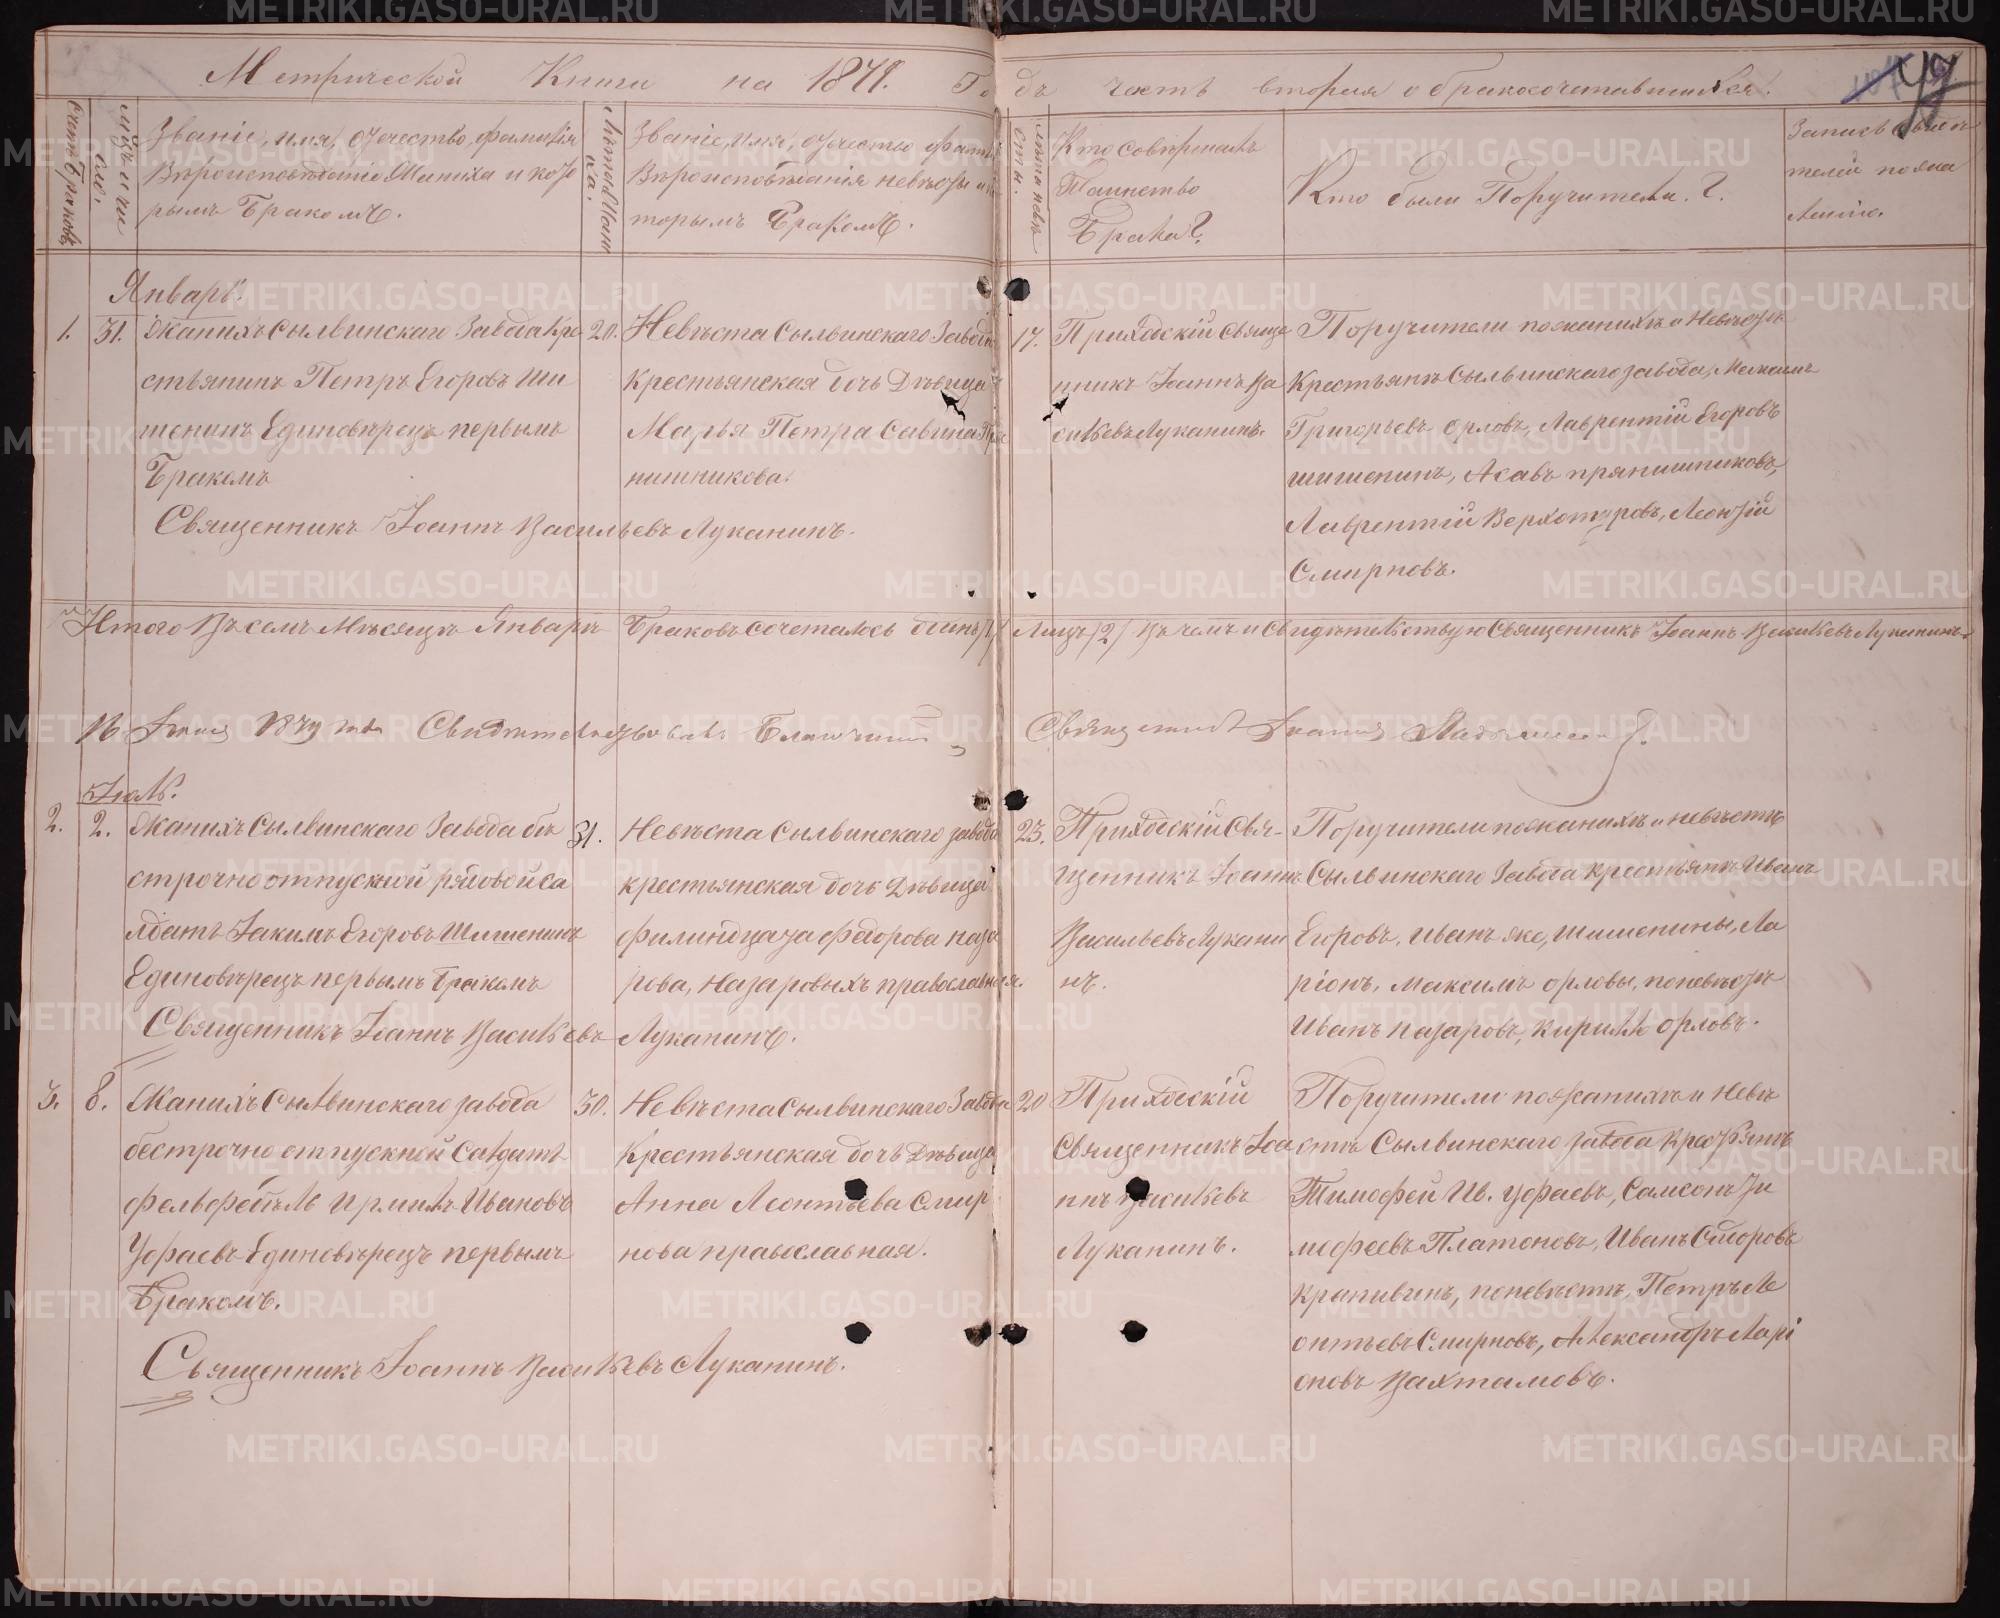 Метрической Книги на 1879. Годъ часть вторая о бракосочетавшихся.
Счетъ Браковъ
Мѣц. и чи
сло.
Званіе, имя, отчество, фамилія
Вѣроисповѣданіе Жениха и кото
рымъ Бракомъ.
Лѣта Жени
ха.
Званіе, имя, отчество фами
Вѣроисповѣданія невѣсты и
торымъ Бракомъ.
лѣта невѣ
сты.
Кто совершалъ
Таинство
Брака?
Кто были Поручители. ?
Запись свидѣ
телей по
Январь.
1.
31.
Жанихъ Сылвинскаго Завода Кре
стьянинъ Петръ Егоровъ Ши
шенинъ Единовѣрецъ первымъ
Бракомъ
20.
Невѣста Сылвинскаго Завода
Крестьянская дочь Дѣвица
Марья Петра Савина Пря
нишникова.
17.
Приходскій Свяще
нникъ Іоаннъ Ва
сильевъ Луканинъ.
Поручители по жанихѣ и Невѣстѣ
Крестьянѣ Сылвинскаго завода, Максимъ
Григорьевъ Орловъ, Лаврентій Егоровъ
шишенинъ, Асавъ прянишниковъ,
Лаврентій Верхотуровъ, Леонтій
Смирновъ.
Священникъ Іоаннъ Васильевъ Луканинъ.
Итого Въ семъ Мѣсяцѣ Январѣ Браковъ сочеталось одинъ /1/ Лицъ /2/ Въ чемъ и свидѣтельствую Священникъ Іоаннъ Васильевъ Луканинъ.
16 1879 года Свидѣтельствовалъ Благочинный Священникъ Іоаннъ
Іюль.
2.
2.
Жанихъ Сылвинскаго Завода бе
строчноотпускной рядовой са
лдатъ Іакимъ Егоровъ Шишенинъ
Единовѣрецъ первымъ Бракомъ
31.
Невѣста Сылвинскаго завода
крестьянская дочь Дѣвица
филиноцата Федорова наза
рова, Назаровыхъ православная.
23.
Приходскій Свя-
щенникъ Іоаннъ
Васильевъ Лукани
нъ.
Поручители по жанихѣ и невѣстѣ
Сылвинскаго Завода крестьянѣ Иванъ
Егоровъ, иванъ яке, шишенины, Ла
ріонъ, максимъ орловы, поневѣстѣ
Иванъ назаровъ, Кирилъ орловъ.
Священникъ Іоаннъ Васильевъ Луканинъ.
3.
8.
Жанихъ Сылвинскаго завода
бестрочно отпускной Салдатъ
фельфебѣль Ирмилъ Ивановъ
Уфаевъ Единовѣрецъ первымъ
Бракомъ.
30.
Невѣста Сылвинскаго Завода
Крестьянская дочь Дѣвица
Анна Леонтьева Смир
нова православная.
20
Приходскій
Священникъ Іоа
ннъ Васильевъ
Луканинъ.
Поручители по жанихѣ и Невѣ
стѣ Сылвинскаго завода крестьянѣ
Тимофей Ив. Уфаевъ, Самсонъ Ти
мофеевъ Платоновъ, Иванъ Сидоровъ
крапивинъ, поневѣстѣ, Петръ Ле
онтьевъ Смирновъ, Александръ Ларі
оновъ Вахтамовъ.
Священникъ Іоаннъ Васильевъ Луканинъ.
METRIKI.GASO-URAL.RU